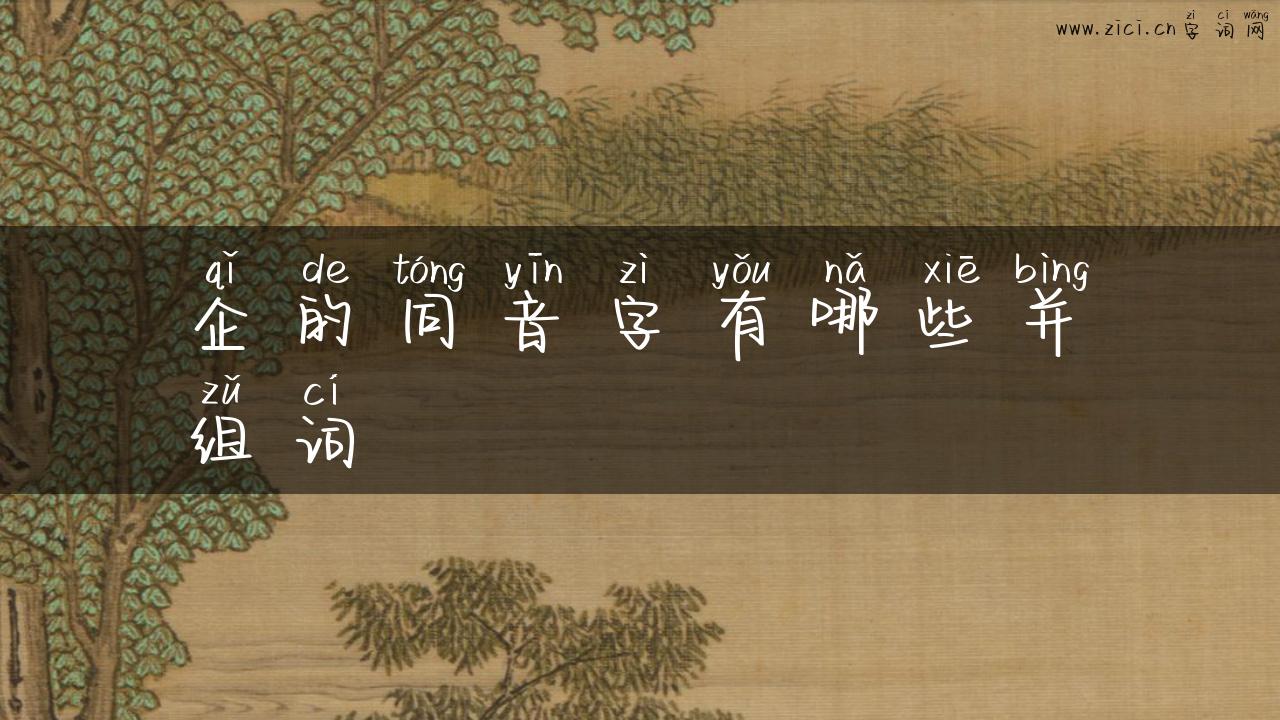 zì cí wǎng
www.zici.cn字词网
qǐ de tóng yīn zì yǒu nǎ xiē bìng
企的同音字有哪些并
zǔ cí
组词